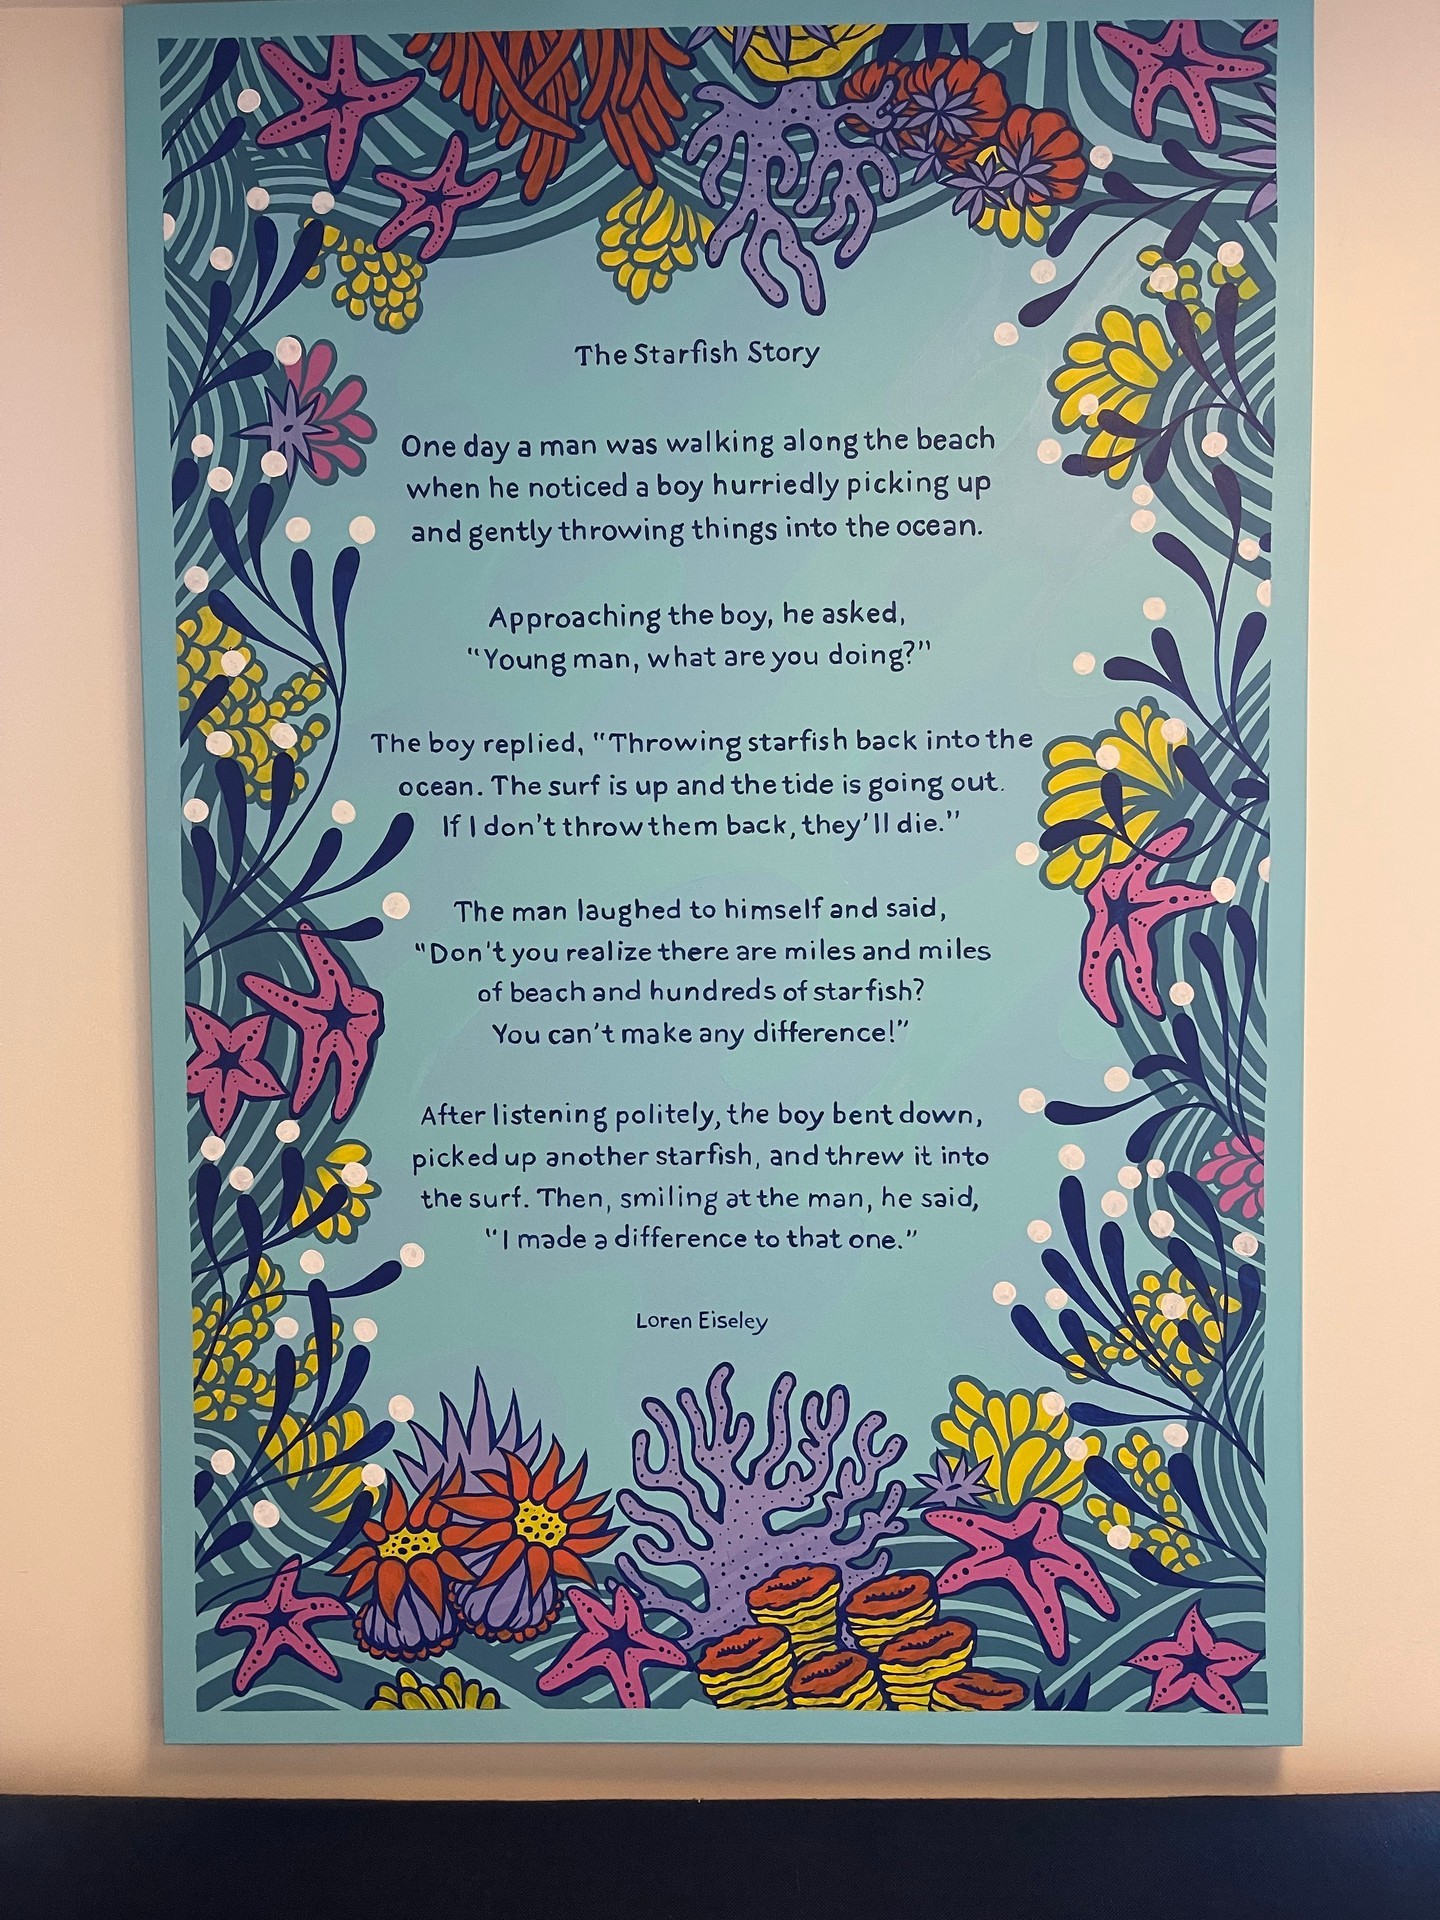 The Starfish Story
One day a man was walking along the beach
when he noticed a boy hurriedly picking up
and gently throwing things into the ocean.
Approaching the boy, he asked,
“Young man, what are you doing?”
The boy replied, “Throwing starfish back into the
ocean. The surf is up and the tide is going out.
If I don't throw them back, they'll die.”
The man laughed to himself and said,
“Don't you realize there are miles and miles
of beach and hundreds of starfish?
You can't make any difference!”
After listening politely, the boy bent down,
picked up another starfish, and threw it into
the surf. Then, smiling at the man, he said,
“I made a difference to that one.”
Loren Eiseley